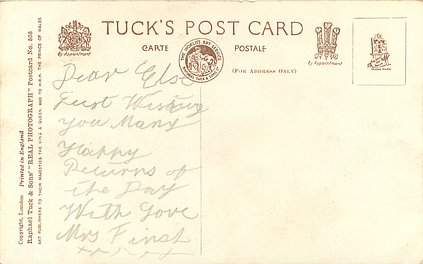 TUCK'S POST CARD
CARTE POSTALE
By Appointment
THE WORLD'S ART SERVICE
RAPHAEL TUCK & SONS LTD
(FOR ADDRESS ONLY)
By Appointment
TRADE MARK
Dear Elsie
Just Wishing
you Many
Happy
Returns of
the Day
With Love
Mrs Finch
Copyright, London Printed in England
Raphael Tuck & Sons' "REAL PHOTOGRAPH" Postcard No.
ART PUBLISHERS TO THEIR MAJESTIES THE KING & QUEEN, AND TO H.R.H. THE PRINCE OF WALES